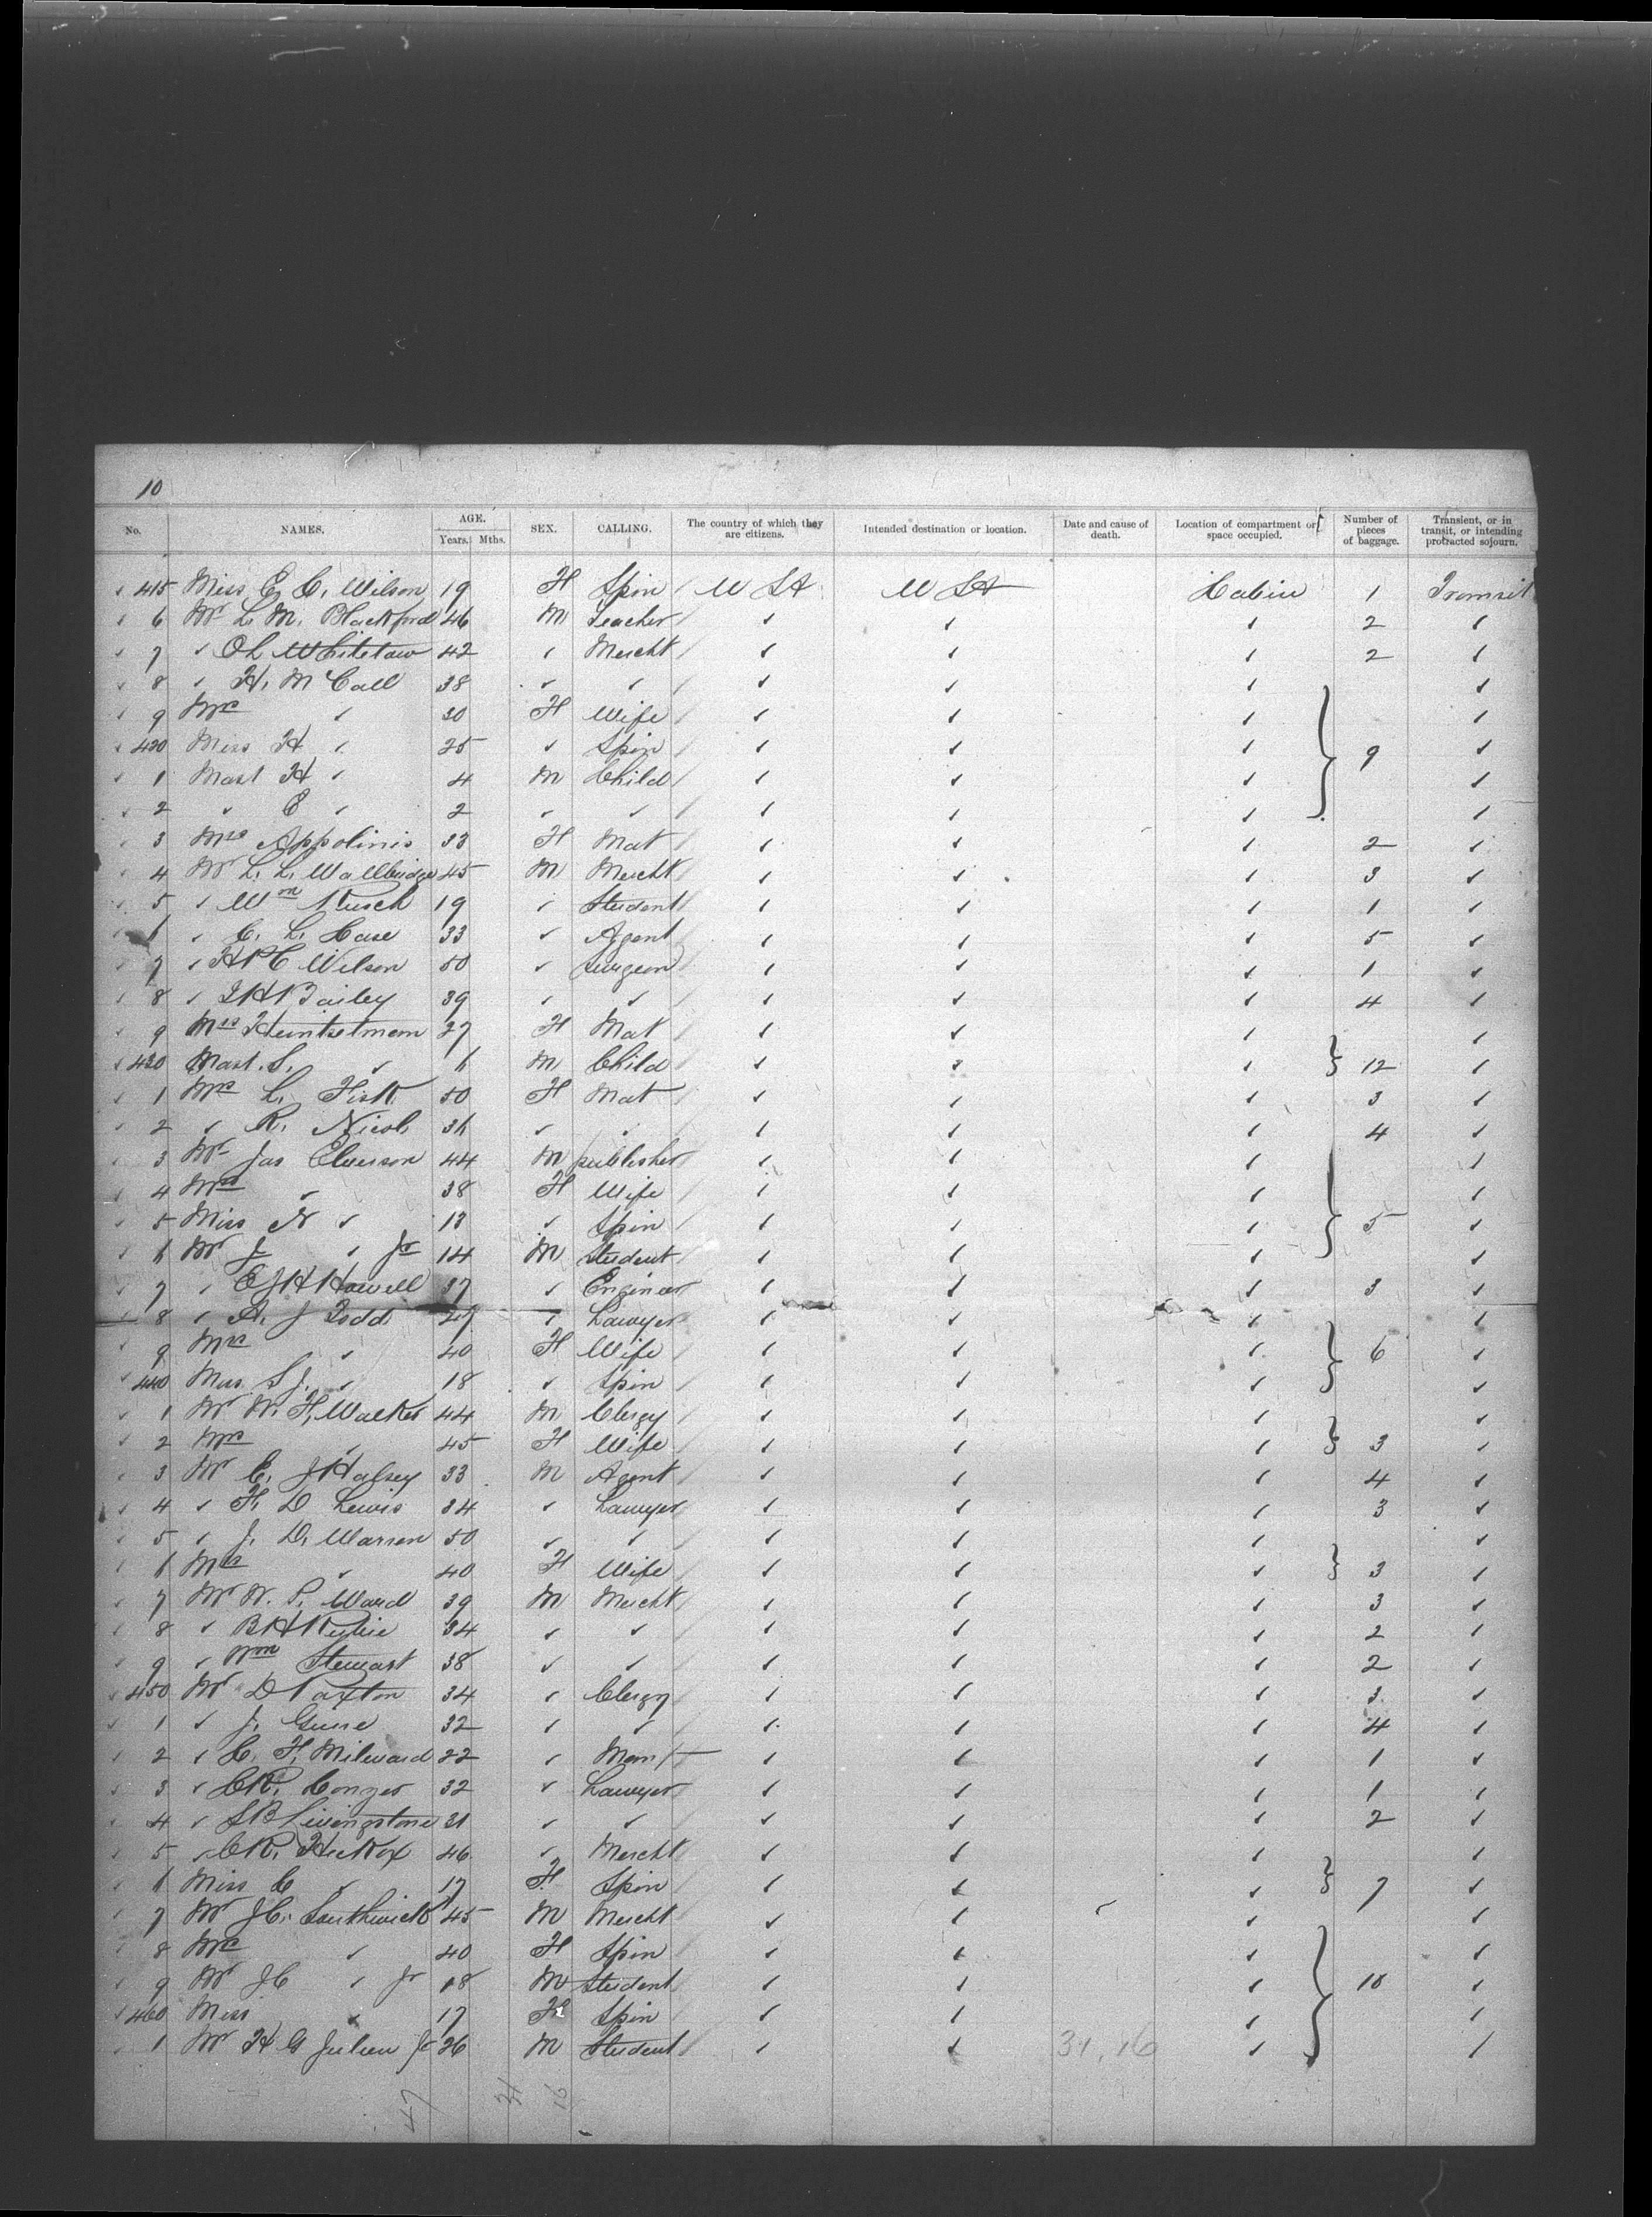 10
No. NAMES. AGE. Years. Mths. SEX. CALLING. The country of which they are citizens. Intended destination or location. Date and cause of death. Location of compartment or space occupied. Number of pieces of baggage. Transient, or in transit, or intending protracted sojourn.
415 Miss E. C. Wilson 19 F Spin U SA U SA Cabin 1 Transit
6 Mr L. M. Blackford 46 M Teacher ✓ ✓ ✓ 2 ✓
7 ✓ O L Whitelaw 42 ✓ Mercht ✓ ✓ ✓ 2 ✓
8 ✓ H. McCall 38 ✓ ✓ ✓ ✓ ✓ ✓
9 Mrs ✓ 30 F Wife ✓ ✓ ✓ ✓
420 Miss H ✓ 25 ✓ Spin ✓ ✓ ✓ 9 ✓
1 Mast H ✓ 4 M Child ✓ ✓ ✓ ✓
2 ✓ C ✓ 2 ✓ ✓ ✓ ✓ ✓ ✓
3 Mrs Appolinis 33 F Mat ✓ ✓ ✓ 2 ✓
4 Mr L. L. Wallbridge 45 M Mercht ✓ ✓ ✓ 3 ✓
5 ✓ Wm 19 ✓ Student ✓ ✓ ✓ 1 ✓
6 ✓ C. L. Case 33 ✓ Agent ✓ ✓ ✓ 5 ✓
7 ✓ H P C Wilson 50 ✓ Surgeon ✓ ✓ ✓ 1 ✓
8 ✓ Bailey 39 ✓ ✓ ✓ ✓ ✓ 4 ✓
9 Mrs Heintzelman 27 F Mat ✓ ✓ ✓ ✓
430 Mast. S. ✓ 6 M Child ✓ ✓ ✓ 12 ✓
1 Mrs L. Fisk 50 F Mat ✓ ✓ ✓ 3 ✓
2 ✓ R. Nicol 36 ✓ ✓ ✓ ✓ ✓ 4 ✓
3 Mr Jas Elverson 44 M publisher ✓ ✓ ✓ ✓
4 Mrs ✓ 38 F Wife ✓ ✓ ✓ ✓
5 Miss N ✓ 13 ✓ Spin ✓ ✓ ✓ 5 ✓
6 Mr J ✓ Jr 14 M Student ✓ ✓ ✓ ✓
7 ✓ Howell 37 ✓ Engineer ✓ ✓ ✓ 3 ✓
8 ✓ A. J Todd ✓ Lawyer ✓ ✓ ✓ ✓
9 Mrs ✓ 40 F Wife ✓ ✓ ✓ 6 ✓
440 Miss S J. ✓ 18 ✓ Spin ✓ ✓ ✓ ✓
1 Mr W. F. Walker 44 M Clergy ✓ ✓ ✓ ✓
2 Mrs ✓ 45 F Wife ✓ ✓ ✓ 3 ✓
3 Mr C. J Halsey 33 M Agent ✓ ✓ ✓ 4 ✓
4 ✓ F. D Lewis 34 ✓ Lawyer ✓ ✓ ✓ 3 ✓
5 ✓ J. D. Warren 50 ✓ ✓ ✓ ✓ ✓ ✓
6 Mrs ✓ 40 F Wife ✓ ✓ ✓ 3 ✓
7 Mr W. P. Ward 39 M Mercht ✓ ✓ ✓ 3 ✓
8 ✓ 34 ✓ ✓ ✓ ✓ ✓ 2 ✓
9 ✓ Wm Stewart 38 ✓ ✓ ✓ ✓ ✓ 2 ✓
450 Mr D Paxton 34 ✓ Clergy ✓ ✓ ✓ 3 ✓
1 ✓ J. 32 ✓ ✓ ✓ ✓ ✓ 4 ✓
2 ✓ C. F. Milward 22 ✓ Manf ✓ ✓ ✓ 1 ✓
3 ✓ C R. Conger 32 ✓ Lawyer ✓ ✓ ✓ 1 ✓
4 ✓ S B Livingstone 31 ✓ ✓ ✓ ✓ ✓ 2 ✓
5 ✓ C R. Hickox 46 ✓ Mercht ✓ ✓ ✓ ✓
6 Miss C ✓ 17 F Spin ✓ ✓ ✓ 7 ✓
7 Mr J C. Southwick 45 M Mercht ✓ ✓ ✓ ✓
8 Mrs ✓ 40 F Spin ✓ ✓ ✓ ✓
9 Mr J C ✓ Jr 18 M Student ✓ ✓ ✓ 10 ✓
460 Miss ✓ 17 F Spin ✓ ✓ ✓ ✓
1 Mr H G Julien Jr 26 M Student ✓ ✓ 31.16 ✓ ✓
47 31 16